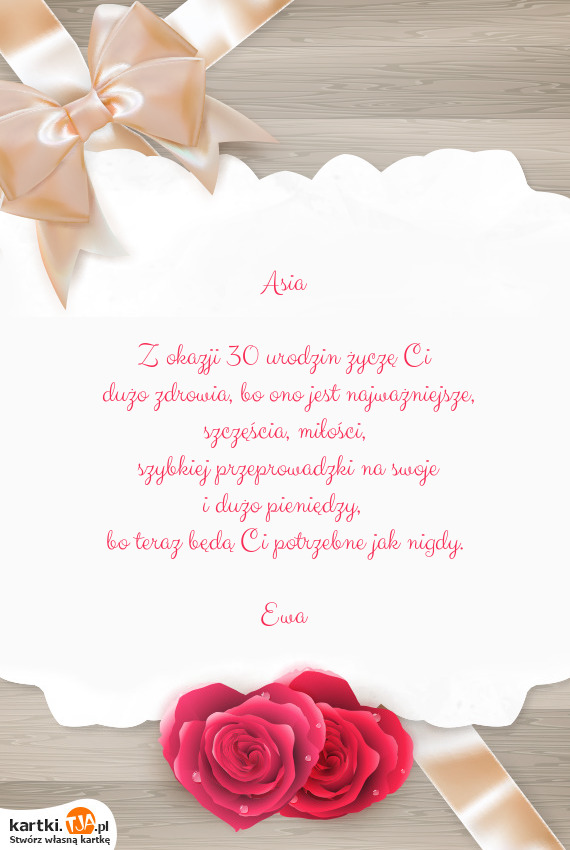 Asia
Z okazji 30 urodzin życzę Ci
dużo zdrowia, bo ono jest najważniejsze,
szczęścia, miłości,
szybkiej przeprowadzki na swoje
i dużo pieniędzy,
bo teraz będą Ci potrzebne jak nigdy.
Ewa
kartki.TJA.pl
Stwórz własną kartkę